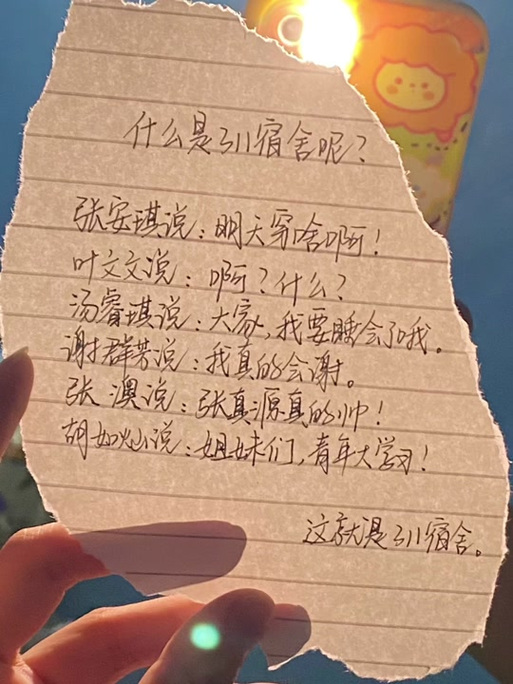 什么是311宿舍呢？
张安琪说：明天穿啥啊！
叶文文说：啊？什么？
汤睿琪说：大家，我要睡会了哦。
谢群芳说：我真的会谢。
张澳说：张真源真的帅！
胡如 说：姐妹们，青年大学习！
这就是311宿舍。